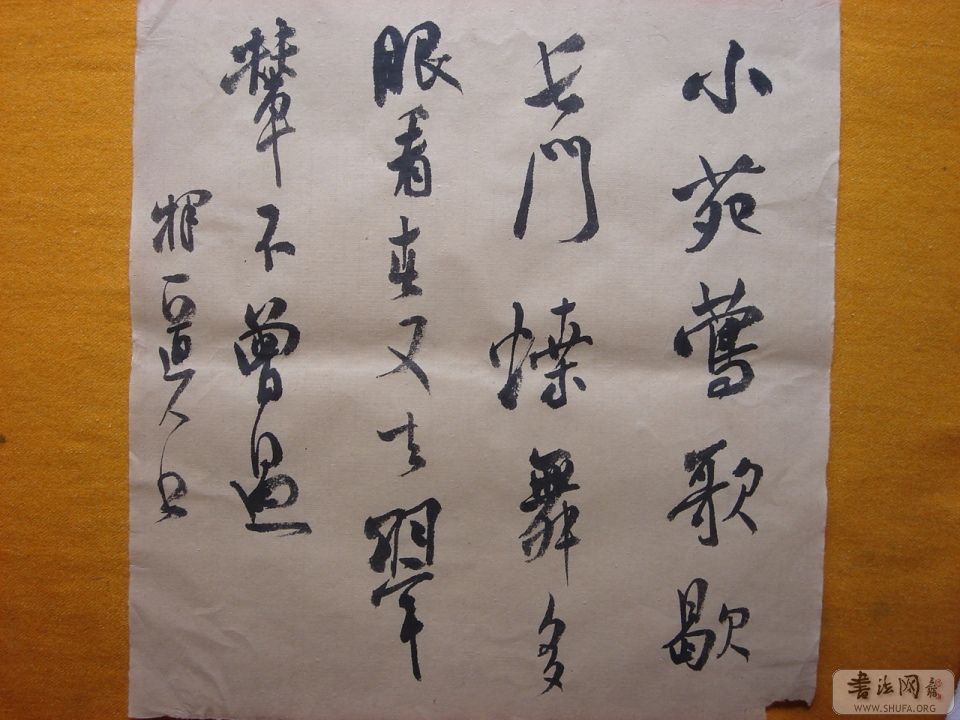 小苑莺歌歇
长门蝶舞多
眼看春又去翠
辇不曾过
道人书
书法网
WWW.SHUFA.ORG